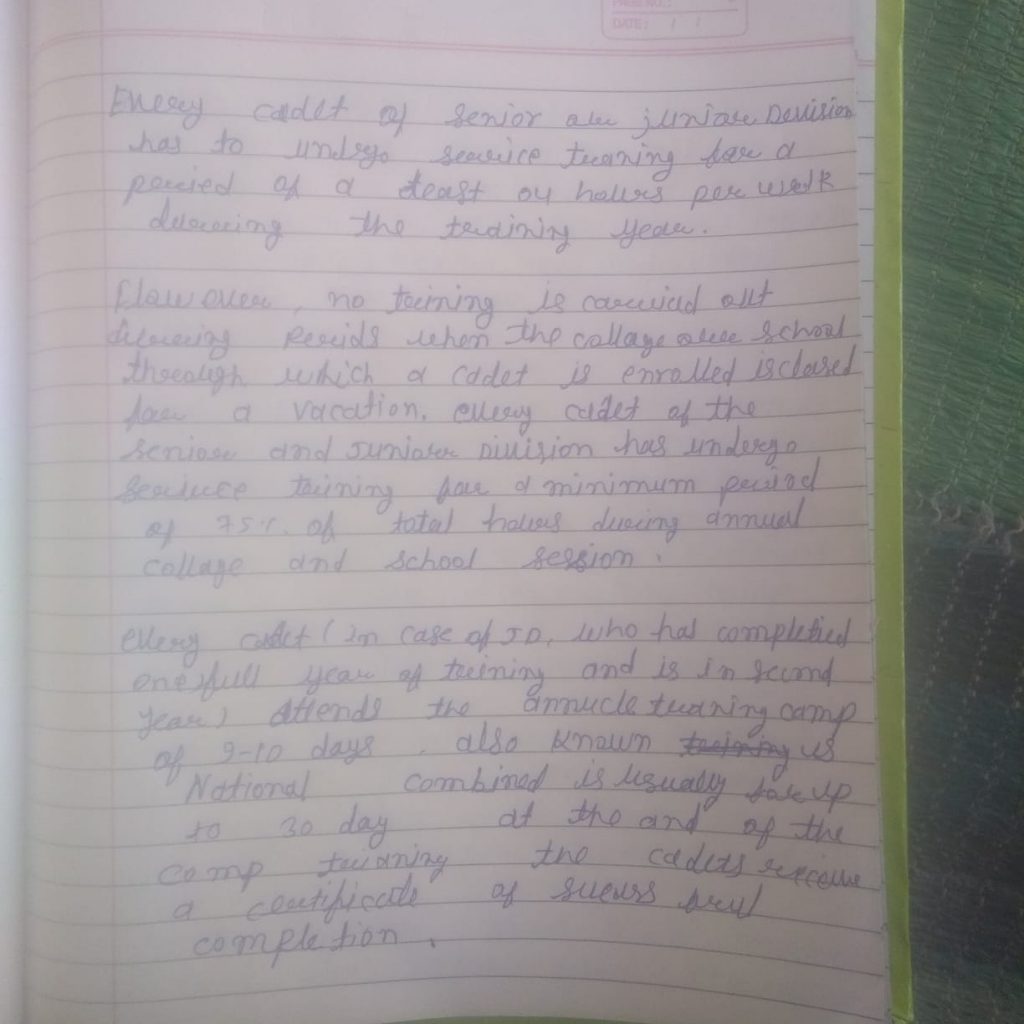 PAGE NO.:
DATE: / /
Every cadet of senior our juniour Devision
has to undrgo service traning for a
peried of a least 04 hours per week
during the training year.
However, no traning is carried out
during Periods when the collage our school
through which a cadet is enrolled is closed
for a vacation. every cadet of the
seniour and Juniour Division has undergo
service training for a minimum period
of 75%. of total hours during annual
collage and school session.
every cadet (in case of JD, who has completied
one full year of training and is in second
year) Attends the annucle traning camp
of 9-10 days. also known us
National combined is usually for up
to 30 day at the and of the
camp training the cadets receive
a certificate of
completion.